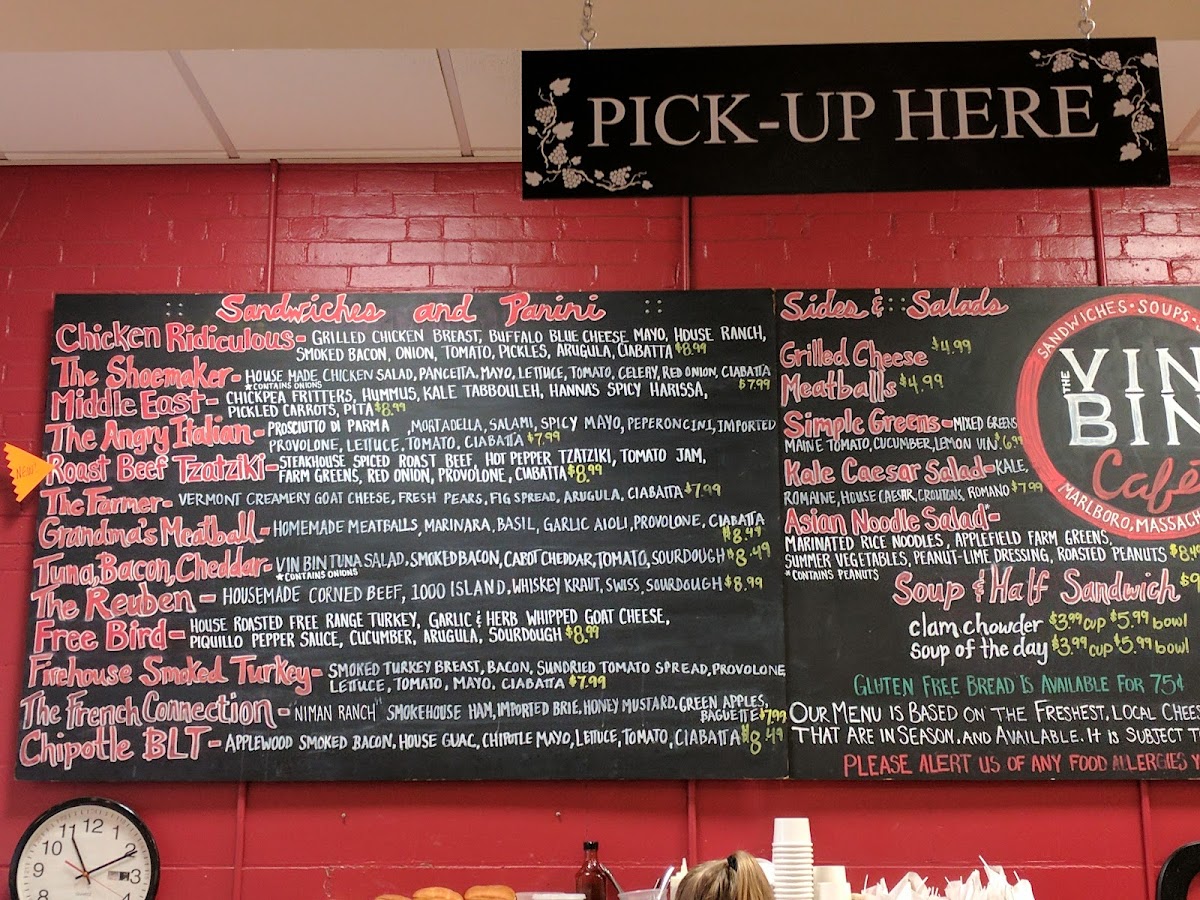 PICK-UP HERE
Sandwiches and Panini
Chicken Ridiculous - GRILLED CHICKEN BREAST, BUFFALO BLUE CHEESE MAYO, HOUSE RANCH,
SMOKED BACON, ONION, TOMATO, PICKLES, ARUGULA, CIABATTA $8.99
The Shoemaker - HOUSE MADE CHICKEN SALAD, PANCETTA, MAYO, LETTUCE, TOMATO, CELERY, RED ONION, CIABATTA
*CONTAINS ONIONS $7.99
Middle East - CHICKPEA FRITTERS, HUMMUS, KALE TABBOULEH, HANNA'S SPICY HARISSA,
PICKLED CARROTS, PITA $8.99
The Angry Italian - PROSCIUTTO DI PARMA, MORTADELLA, SALAMI, SPICY MAYO, PEPERONCINI, IMPORTED
PROVOLONE, LETTUCE, TOMATO, CIABATTA $7.99
NEW!
Roast Beef Tzatziki - STEAKHOUSE SPICED ROAST BEEF, HOT PEPPER TZATZIKI, TOMATO JAM,
FARM GREENS, RED ONION, PROVOLONE, CIABATTA $8.99
The Farmer - VERMONT CREAMERY GOAT CHEESE, FRESH PEARS, FIG SPREAD, ARUGULA, CIABATTA $7.99
Grandma's Meatball - HOMEMADE MEATBALLS, MARINARA, BASIL, GARLIC AIOLI, PROVOLONE, CIABATTA
$8.49
Tuna, Bacon, Cheddar - VIN BIN TUNA SALAD, SMOKED BACON, CABOT CHEDDAR, TOMATO, SOURDOUGH $8.49
*CONTAINS ONIONS
The Reuben - HOUSEMADE CORNED BEEF, 1000 ISLAND, WHISKEY KRAUT, SWISS, SOURDOUGH $8.99
Free Bird - HOUSE ROASTED FREE RANGE TURKEY, GARLIC & HERB WHIPPED GOAT CHEESE,
PIQUILLO PEPPER SAUCE, CUCUMBER, ARUGULA, SOURDOUGH $8.99
Firehouse Smoked Turkey - SMOKED TURKEY BREAST, BACON, SUNDRIED TOMATO SPREAD, PROVOLONE
LETTUCE, TOMATO, MAYO, CIABATTA $7.99
The French Connection - NIMAN RANCH" SMOKEHOUSE HAM, IMPORTED BRIE, HONEY MUSTARD, GREEN APPLES,
BAGUETTE $7.99
Chipotle BLT - APPLEWOOD SMOKED BACON, HOUSE GUAC, CHIPOTLE MAYO, LETTUCE, TOMATO, CIABATTA $8.49
Sides & Salads
Grilled Cheese $4.99
Meatballs $4.99
Simple Greens - MIXED GREENS
MAINE TOMATO, CUCUMBER, LEMON VIN. $6.99
Kale Caesar Salad - KALE,
ROMAINE, HOUSE CAESAR, CROUTONS, ROMANO $7.99
Asian Noodle Salad* -
MARINATED RICE NOODLES, APPLEFIELD FARM GREENS,
SUMMER VEGETABLES, PEANUT-LIME DRESSING, ROASTED PEANUTS
*CONTAINS PEANUTS
Soup & Half Sandwich
clam chowder $3.99 cup $5.99 bowl
soup of the day $3.99 cup $5.99 bowl
GLUTEN FREE BREAD IS AVAILABLE FOR 75¢
OUR MENU IS BASED ON THE FRESHEST, LOCAL CHEES
THAT ARE IN SEASON, AND AVAILABLE. IT IS SUBJECT T
PLEASE ALERT US OF ANY FOOD ALLERGIES
SANDWICHES • SOUPS •
THE VIN
BIN
Café
MARLBORO, MASSACH
11 12 1
10 2
9 3
8 4